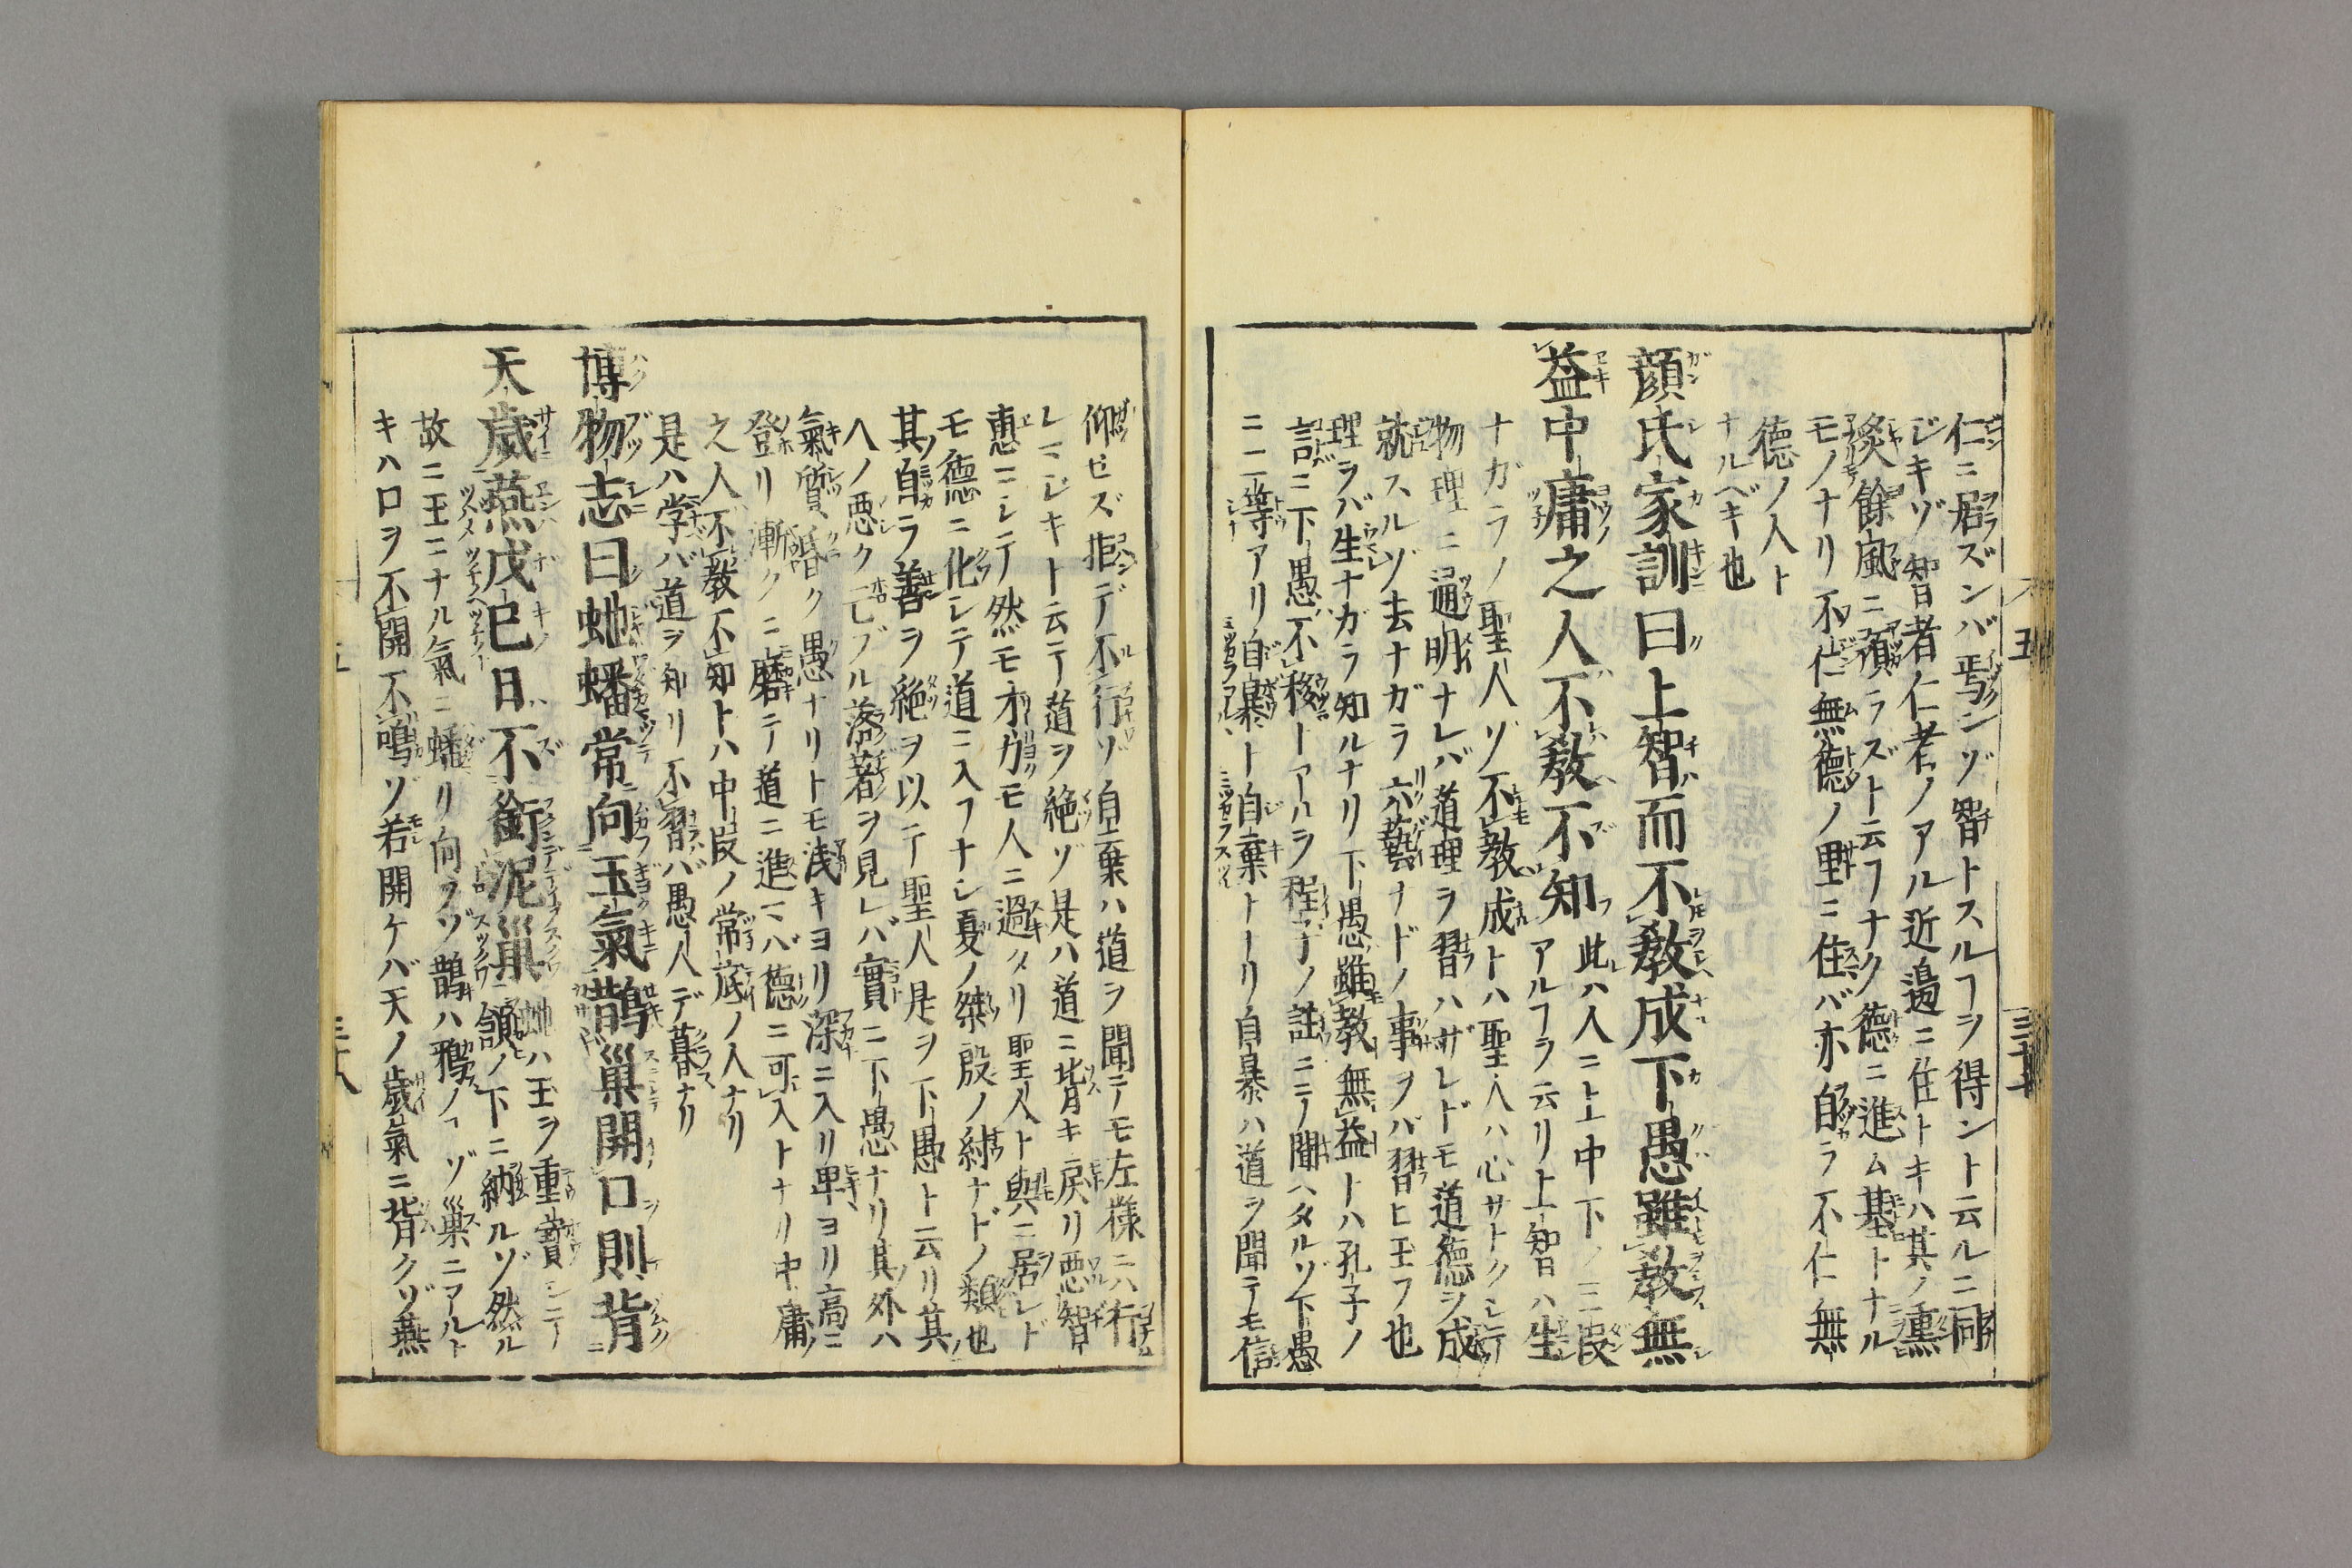 仁ニ居ズンバ焉ンゾ智トスルヿヲ得ント云ルニ同
ジキゾ智者仁者ノアル近邊ニ住トキハ其ノ薫
餘風ニ預ラズト云フナク德ニ進ム基トナル
モノナリ不仁無德ノ里ニ住バ亦自ラ不仁無
德ノ人ト
ナルベキ也
顔氏家訓曰上智而不教成下愚雖教無
益中庸之人不教不知
此ハ人ニ上中下ノ三段
アルヿヲ云リ上智ハ生
ナガラノ聖人ゾ不教成トハ聖人ハ心サトクシテ
物理ニ通明ナレバ道理ヲ習ハザレドモ道德ヲ成
就スルゾ去ナガラ六藝ナドノ事ヲバ習ヒ玉フ也
理ヲバ生ナガラ知ルナリ下愚雖教無益トハ孔子ノ
言ニ下愚不移トアルヲ程子ノ註ニニノ聞ハタルゾ下愚
ニ二等アリ自暴ト自棄トナリ自暴ハ道ヲ聞テモ信
仰セズ拒デ不行ゾ自棄ハ道ヲ聞テモ左様ニハ行
レマジキト云テ道ヲ絶ゾ是ハ道ニ背キ戻リ悪智
恵ニシテ然モ才力モ人ニ過タリ聖人ト與ニ居レド
モ德ニ化シテ道ニ入フナシ夏ノ桀殷ノ紂ナドノ類也
其自ラ善ヲ絶ヲ以テ聖人是ヲ下愚ト云リ其
人ノ悪ク亡ブル落著ヲ見レバ實ニ下愚ナリ其外ハ
氣質昏ク愚ナリトモ浅キヨリ深ニ入リ卑ヨリ高ニ
登リ漸クニ磨テ道ニ進マバ德ニ可入トナリ中庸
之人不教不知トハ中段ノ常底ノ人ナリ
是ハ学バ道ヲ知リ不習バ愚人デ暮ナリ
博物志曰虵蟠常向玉氣鵲巢開口則背
天歲燕戊巳日不銜泥巢
虵ハ玉ヲ重寶シテ
頷ノ下ニ納ルゾ然ル
故ニ玉ニナル氣ニ蟠リ向フゾ鵲ハ鴉ノヿゾ巢ニアルト
キハ口ヲ不開不鳴ゾ若開ケバ天ノ歲氣ニ背クゾ燕